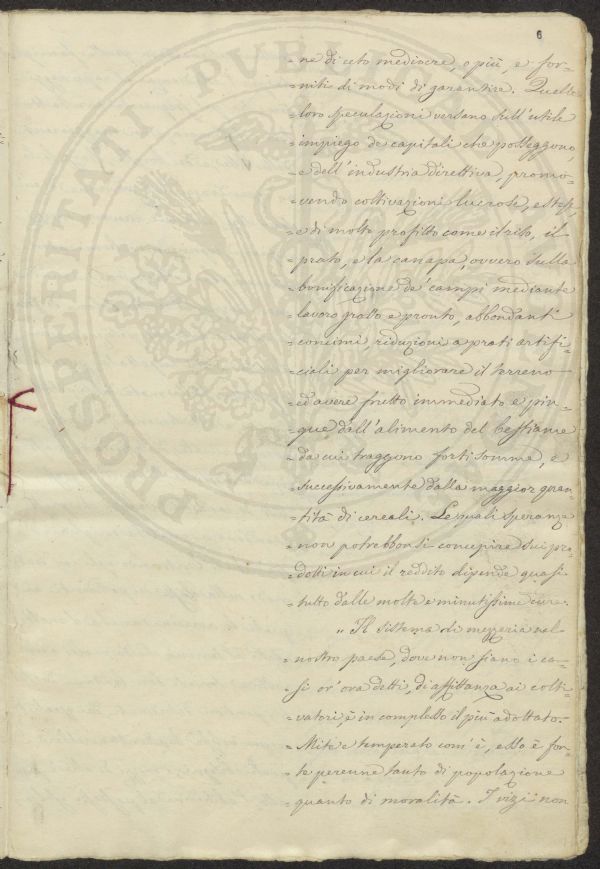 6
=ne di ceto mediocre, e più, e for=
=niti di modi di garantire. Quelle
=loro speculazioni versano sull'utile
=impiego de' capitali che posseggono,
=e dell'industria direttiva, promo=
=vendo coltivazioni lucrose, estese,
=e di molto profitto come il riso, il
=prato, e la canapa, ovvero sulla
=bonificazione de' campi mediante
=lavoro grosso e pronto, abbondanti
=concimi, riduzioni a prati artifi=
=ciali per migliorare il terreno
=ed avere frutto immediato e pin=
=gue dall'alimento del bestiame
=da cui traggono forti somme, e
=successivamente dalla maggior quan
=tità di cereali. Le quali speranze
=non potrebbonsi concepire sui pro=
=dotti in cui il reddito dipende quasi
=tutto dalle molte e minutissime cure.
=" Il sistema di mezzeria nel
=nostro paese, dove non siano i ca=
=si or' ora detti, di affittanza ai colti=
=vatori, è in complesso il più adottato.
=Mite e temperato com'è, esso è fon=
=te perenne tanto di popolazione
=quanto di moralità. I vizi non
PROSPERITATI PUBLICAE